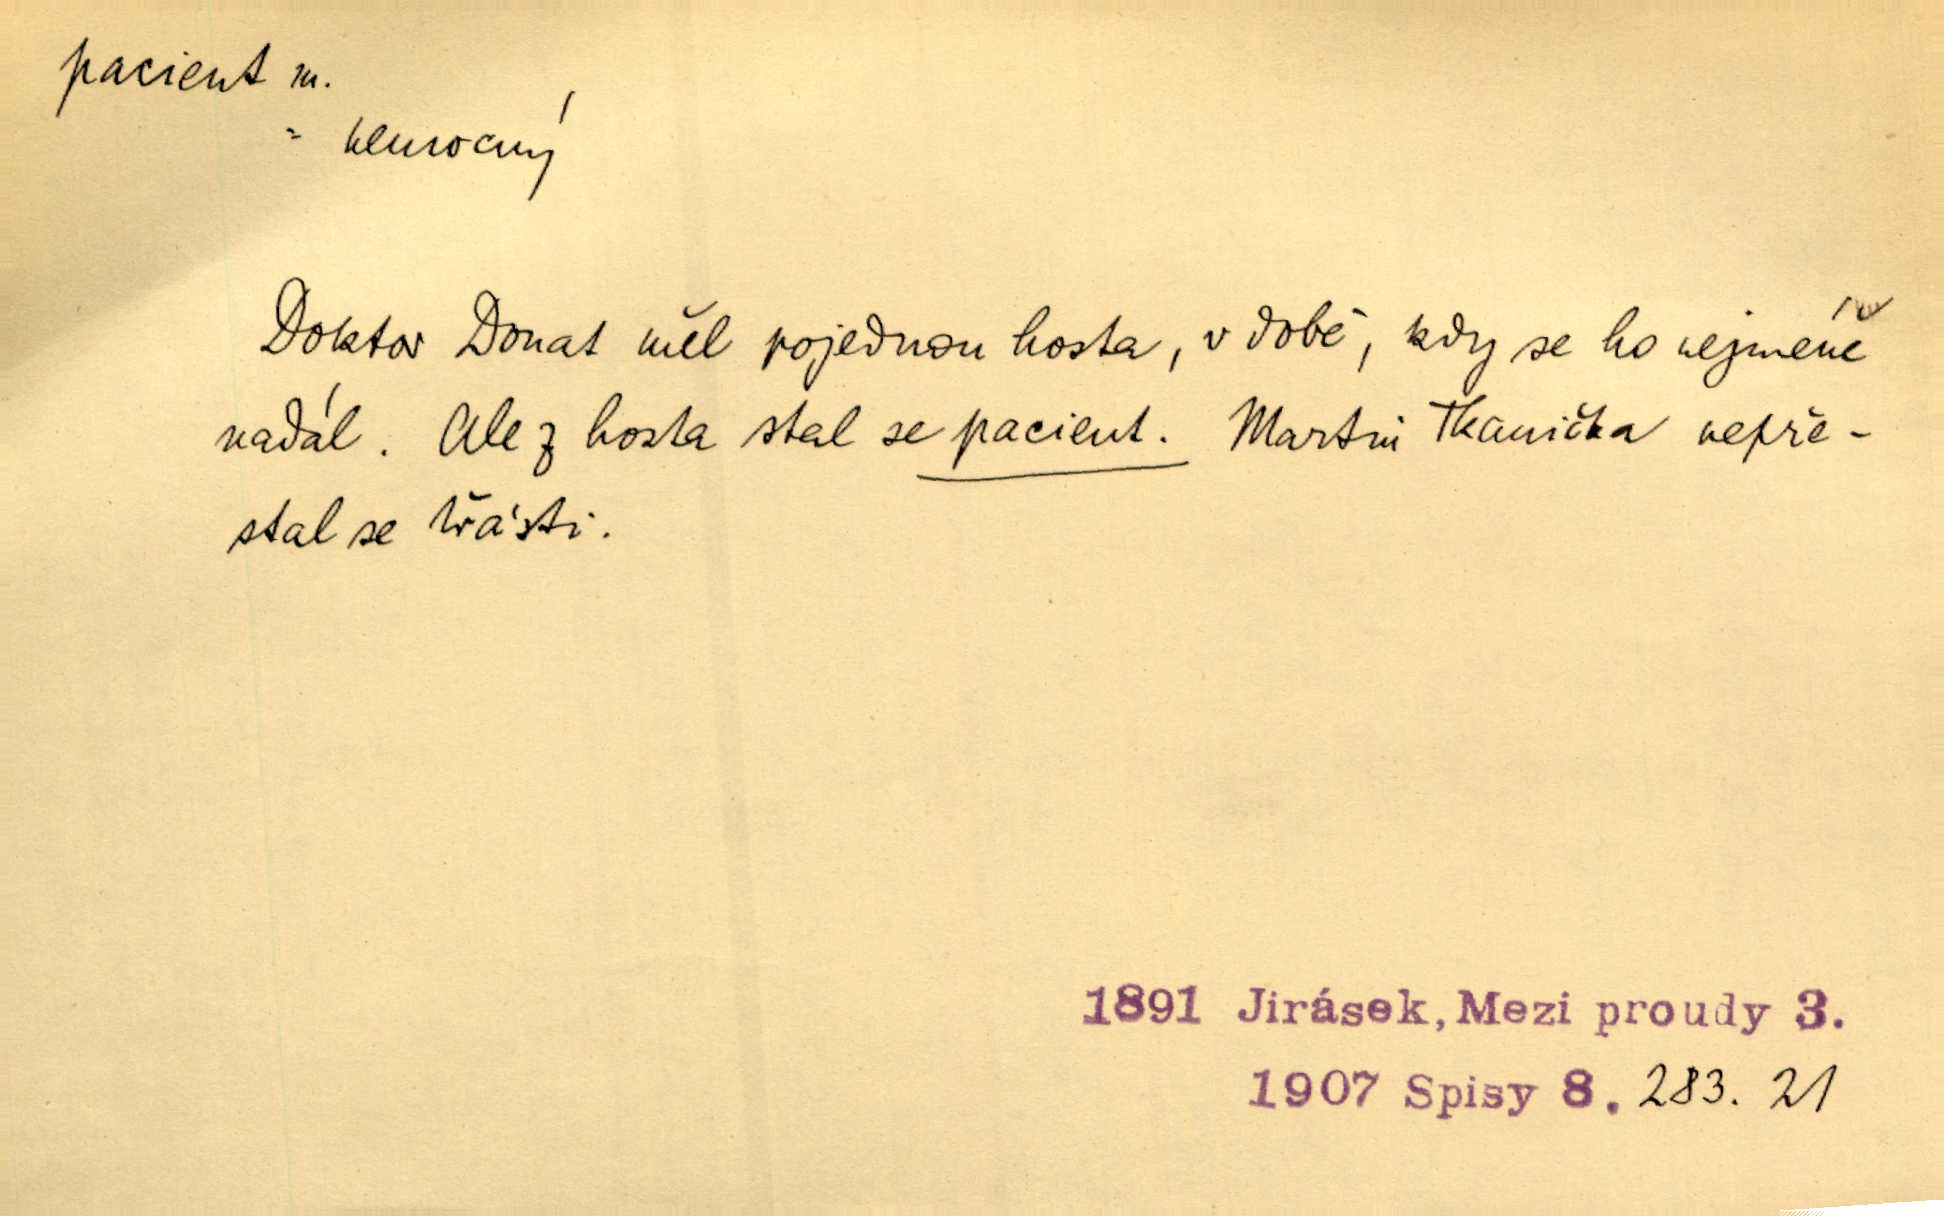 pacient m.
= nemocný
Doktor Donat měl pojednou hosta, v době, kdy se ho nejméně
nadál. Ale z hosta stal se pacient. Martin Tkanička nepře-
stal se třásti.
1891 Jirásek, Mezi proudy 3.
1907 Spisy 8. 283. 21